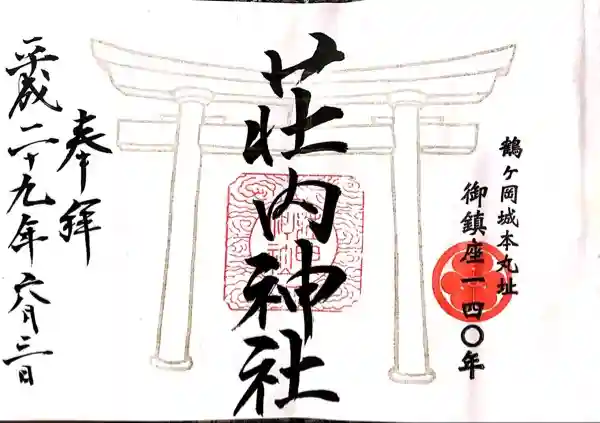 鶴ヶ岡城本丸址
御鎮座一四〇年
荘内神社
奉拝
平成二十九年六月三日